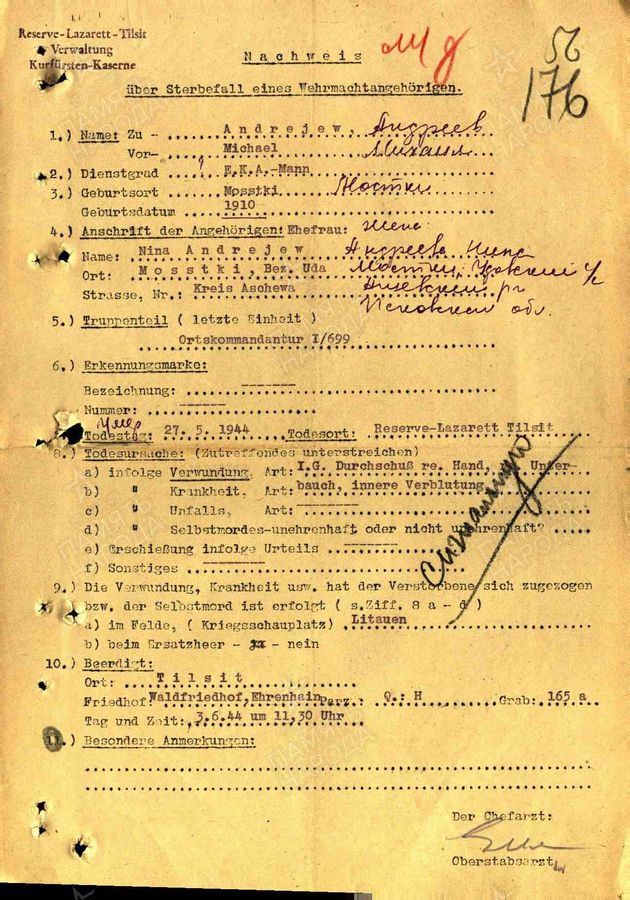 Reserve-Lazarett-Tilsit
Verwaltung
Kurfürsten-Kaserne
56
176
Nachweis
über Sterbefall eines Wehrmachtangehörigen.
1.) Name: Zu- Andrejew, Андреев
Vor- Michael Михаил
2.) Dienstgrad F.K.A.-Mann
3.) Geburtsort Mosstki Мостки
Geburtsdatum 1910
4.) Anschrift der Angehörigen: Ehefrau: жена
Name: Nina Andrejew Андреева Нина
Ort: Mosstki, Bez. Uda Мостки, Удовский с/с
Strasse, Nr.: Kreis Aschewa Ашевский р-н
Псковской обл.
5.) Truppenteil ( letzte Einheit )
Ortskommandantur I/699
6.) Erkennungsmarke:
Bezeichnung:
Nummer:
умер
Todestag: 27. 5. 1944 Todesort: Reserve-Lazarett Tilsit
8.) Todesursache: (Zutreffendes unterstreichen)
a) infolge Verwundung, Art: I.G. Durchschuß re. Hand, Unter-
b) " Krankheit, Art: bauch, innere Verblutung
c) " Unfalls, Art:
d) " Selbstmordes-unehrenhaft oder nicht unehrenhaft?
e) Erschießung infolge Urteils
f) Sonstiges
9.) Die Verwundung, Krankheit usw. hat der Verstorbene sich zugezogen
bzw. der Selbstmord ist erfolgt ( s.Ziff. 8 a - d )
a) im Felde, ( Kriegsschauplatz) Litauen
b) beim Ersatzheer - ja - nein
10.) Beerdigt:
Ort: Tilsit
Friedhof: Waldfriedhof, Ehrenhain Parz.: Q.: H Grab: 165 a
Tag und Zeit: 3.6.44 um 11,30 Uhr
11.) Besondere Anmerkungen:
Der Chefarzt:
Oberstabsarzt